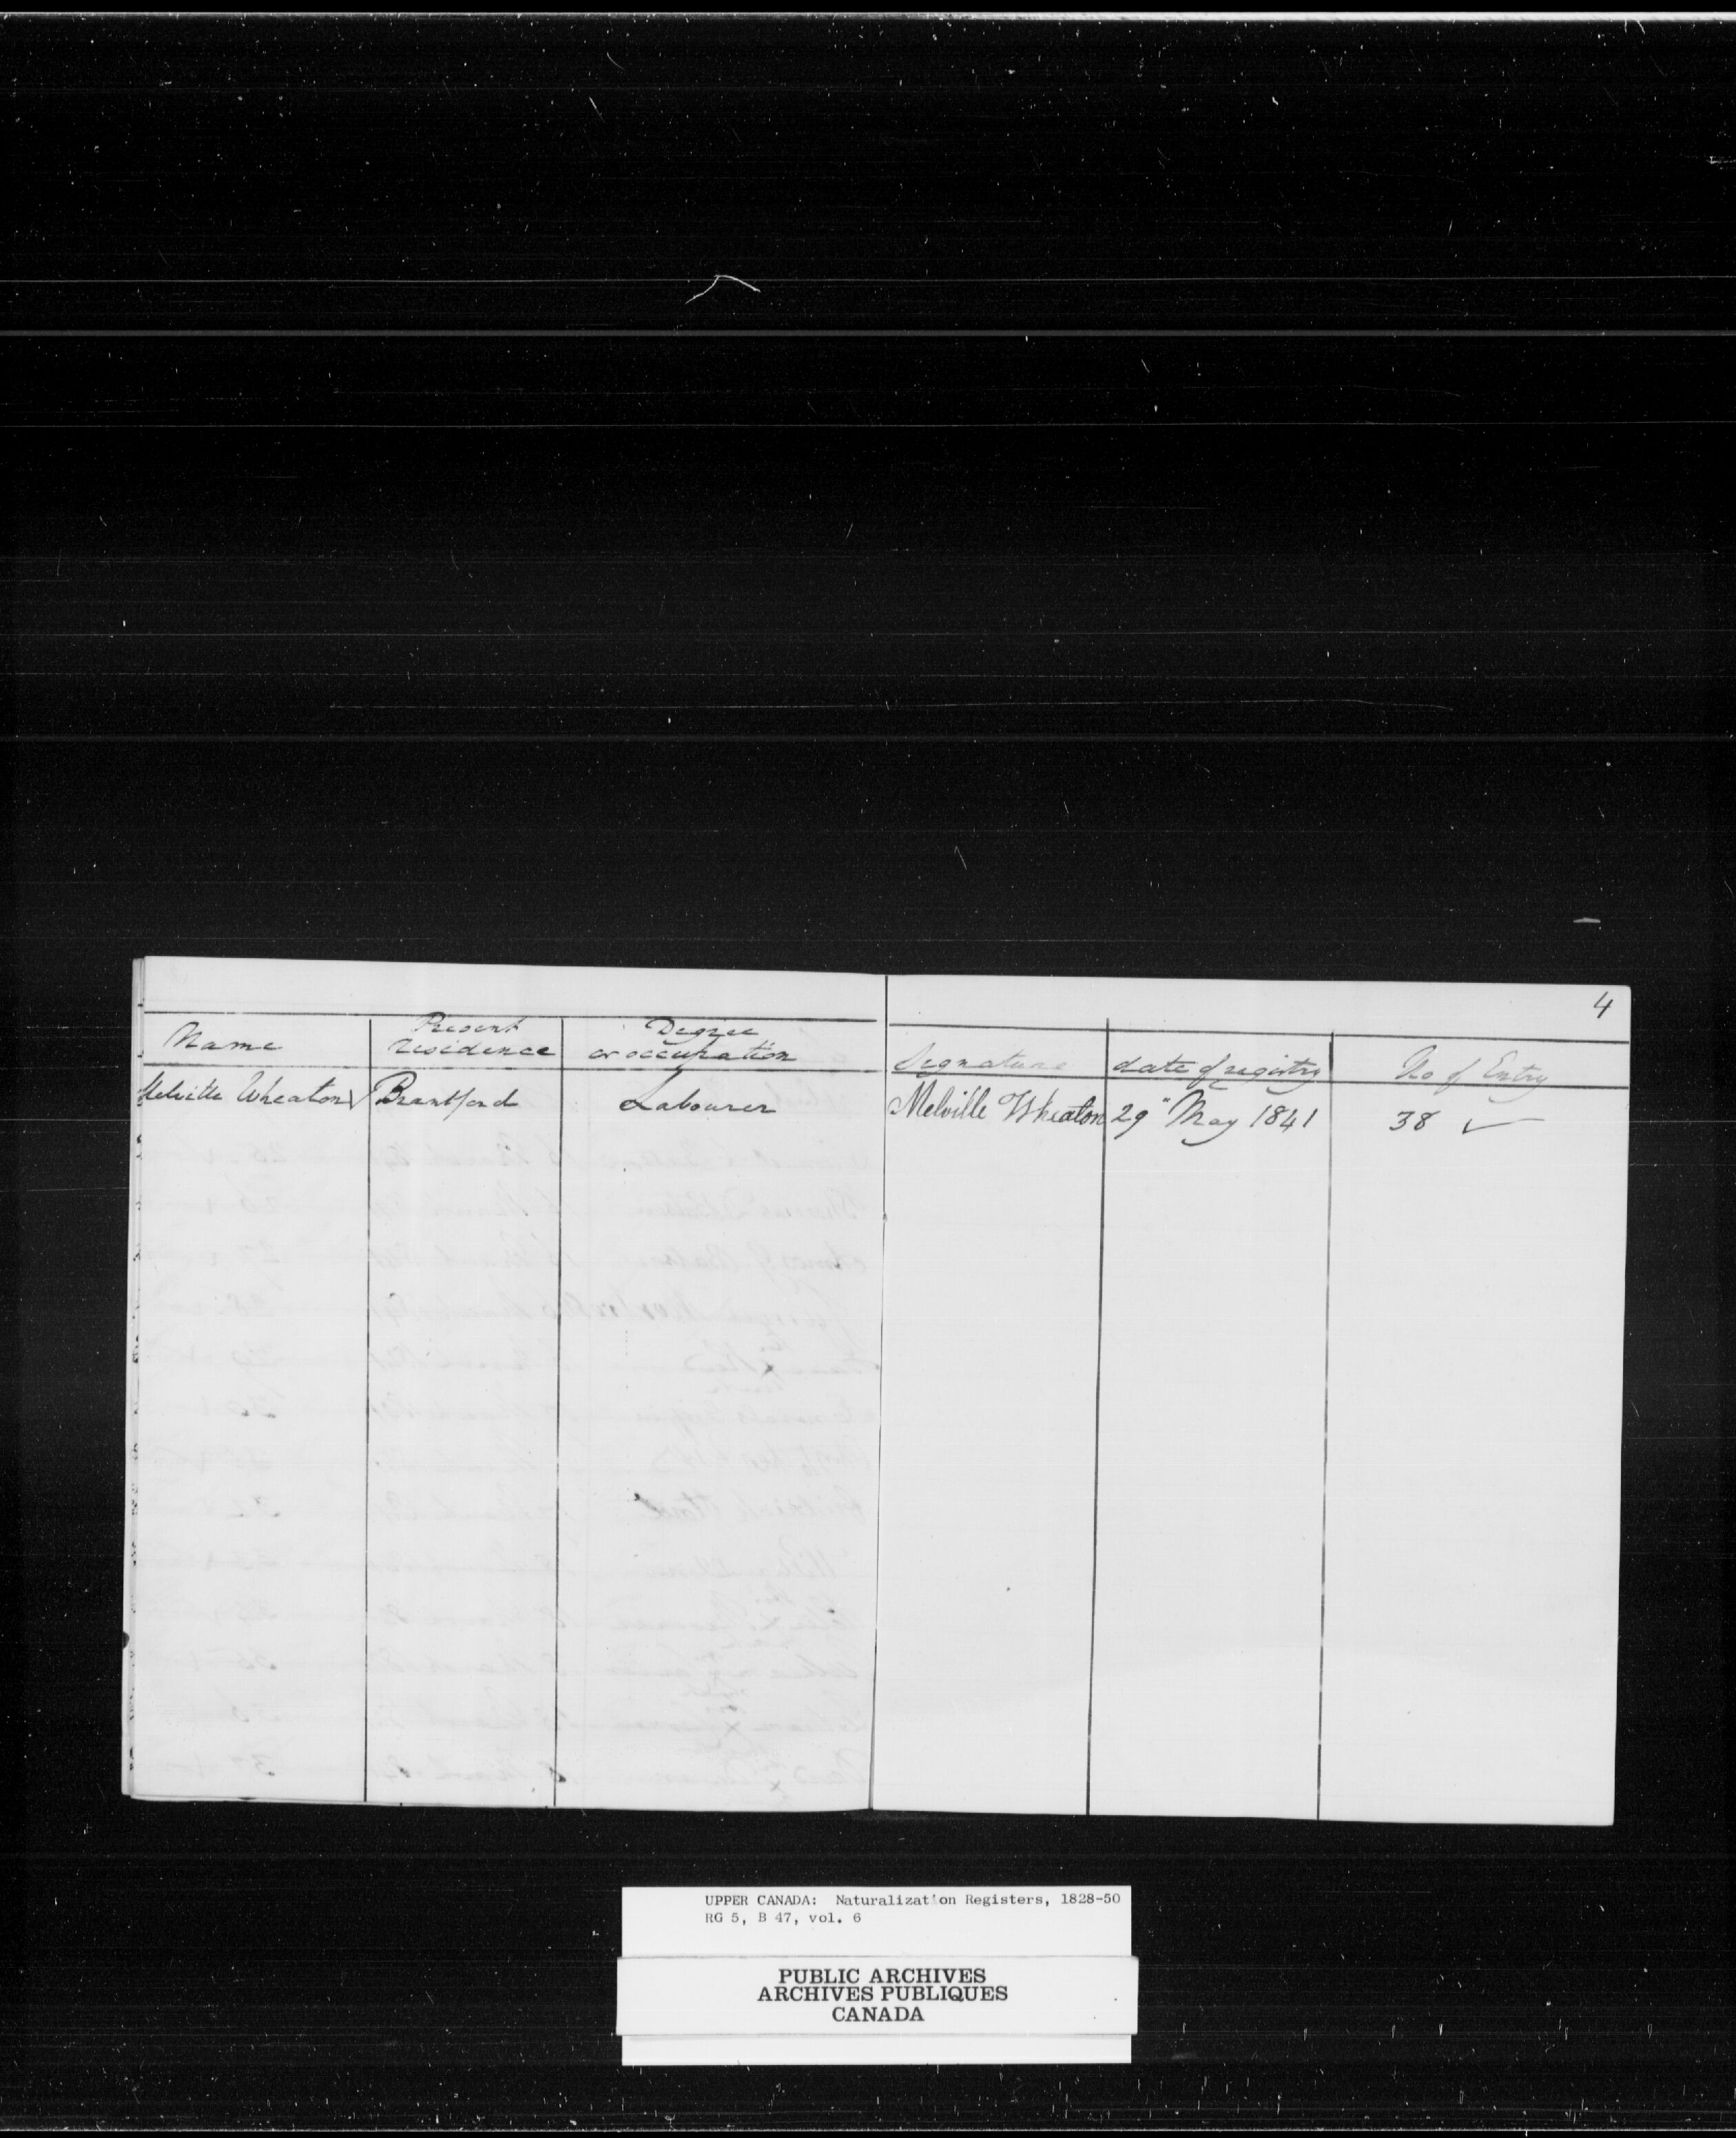 4
Name
Present residence
Degree or occupation
Signature
date of registry
No of Entry
Melville Wheaton Brantford Labourer Melville Wheaton 29" May 1841 38 ✓
UPPER CANADA: Naturalization Registers, 1828-50
RG 5, B 47, vol. 6
PUBLIC ARCHIVES
ARCHIVES PUBLIQUES
CANADA